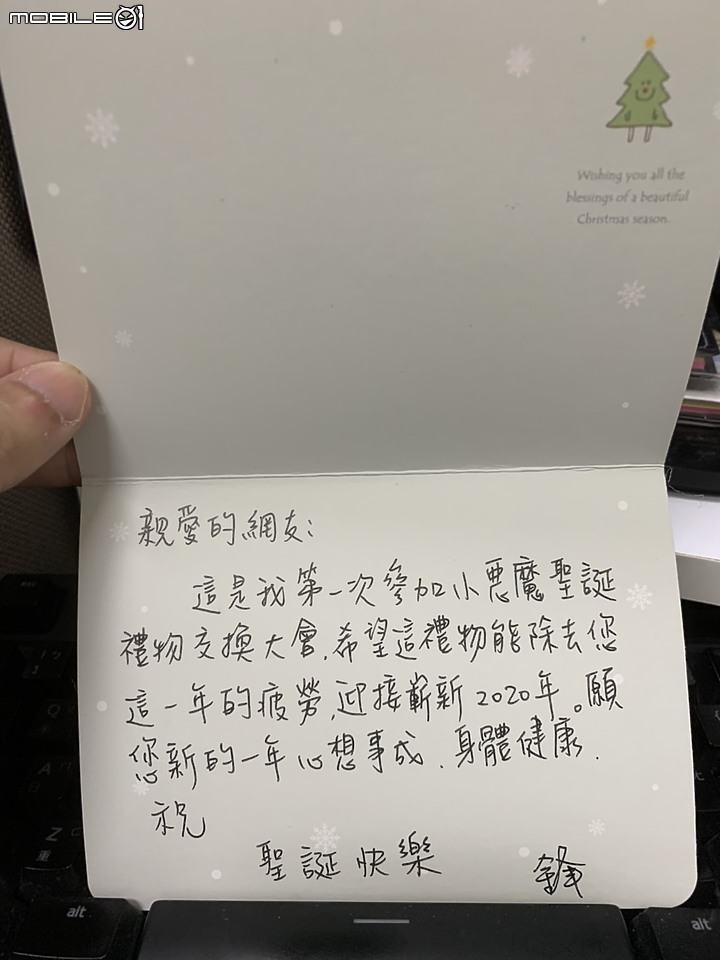 MOBILE01
Wishing you all the
blessings of a beautiful
Christmas season.
親愛的網友:
這是我第一次參加小惡魔聖誕
禮物交換大會,希望這禮物能除去您
這一年的疲勞,迎接嶄新2020年。願
您新的一年心想事成、身體健康.
祝
聖誕快樂
鋒
Q
A
Z
重
alt
alt